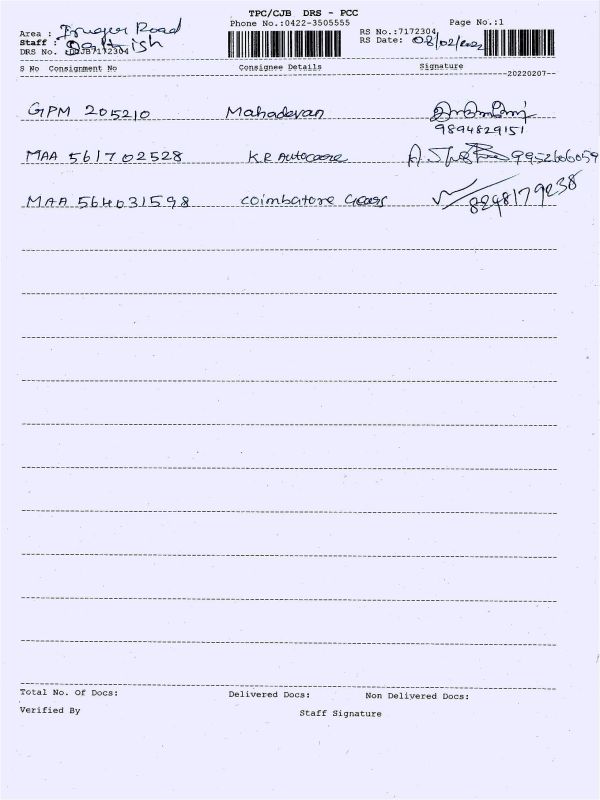 TPC/CJB DRS - PCC
Phone No.:0422-3505555
Page No.:1
Area : Road
RS No.:7172304
Staff :
RS Date: 08/02/2022
DRS No. CJB7172304
S No Consignment No Consignee Details Signature
20220207
GPM 205210 Mahadevan
9894829151
MAA 561702528 K.R Autocare 9952606059
MAA 564031598 Coimbatore Gears 8248179238
Total No. Of Docs: Delivered Docs: Non Delivered Docs:
Verified By Staff Signature